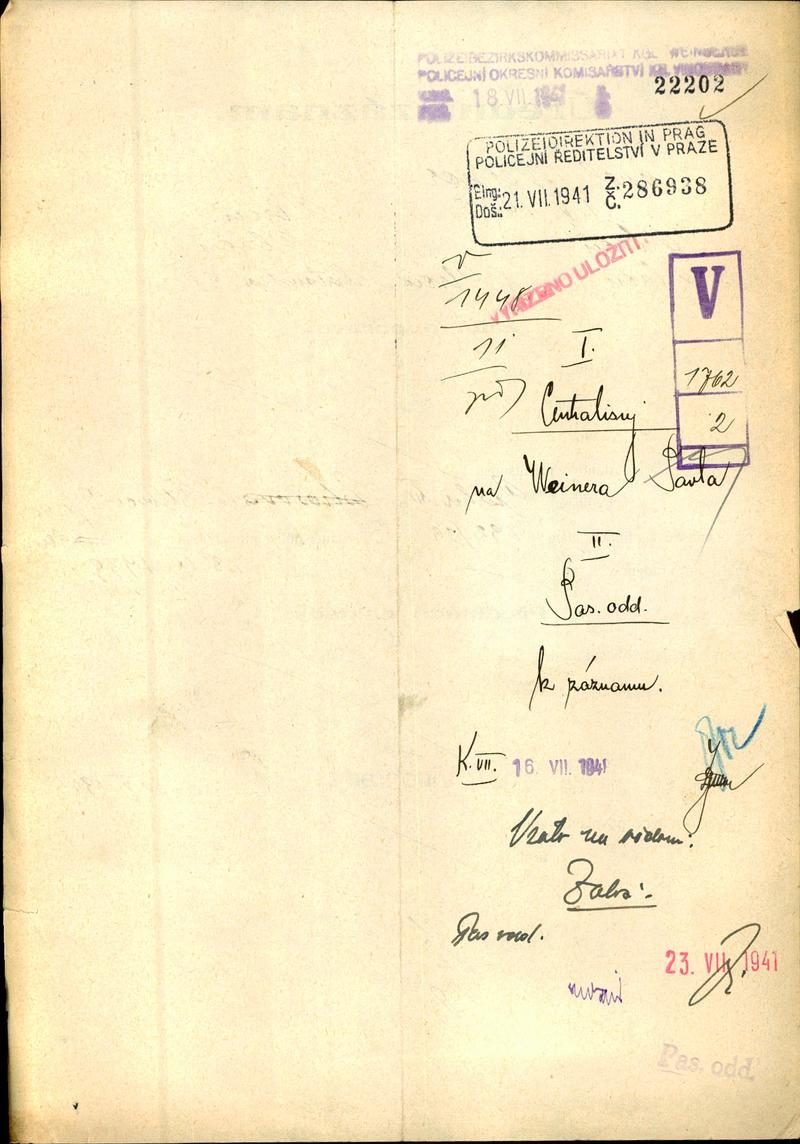 POLIZEIBEZIRKSKOMMISSARIAT KGL. WEINBERGE
POLICEJNÍ OKRESNÍ KOMISAŘSTVÍ KR. VINOHRADY
18. VII. 1941
22202
POLIZEIDIREKTION IN PRAG
POLICEJNÍ ŘEDITELSTVÍ V PRAZE
Eing.: Došl.: 21. VII. 1941 Z. Č. 286938
VYŘÍZENO ULOŽIT!
V
1448
11
V
1762
2
I.
na Weinera Pavla
II.
Pas. odd.
k záznamu.
K. VII. 16. VII. 1941
Vzato na vědomí.
Pas odd.
23. VII. 1941
Pas. odd.